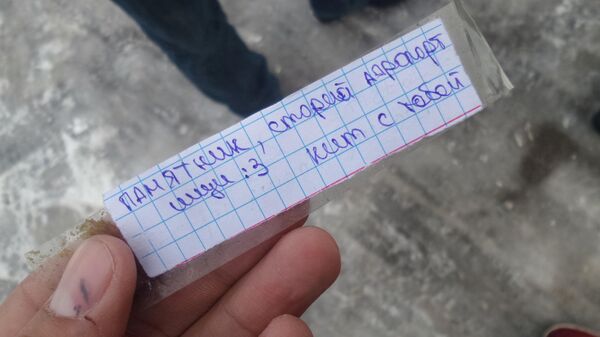 ПАМЯТНИК, старый аэропорт
ищи :3 Кит с тобой